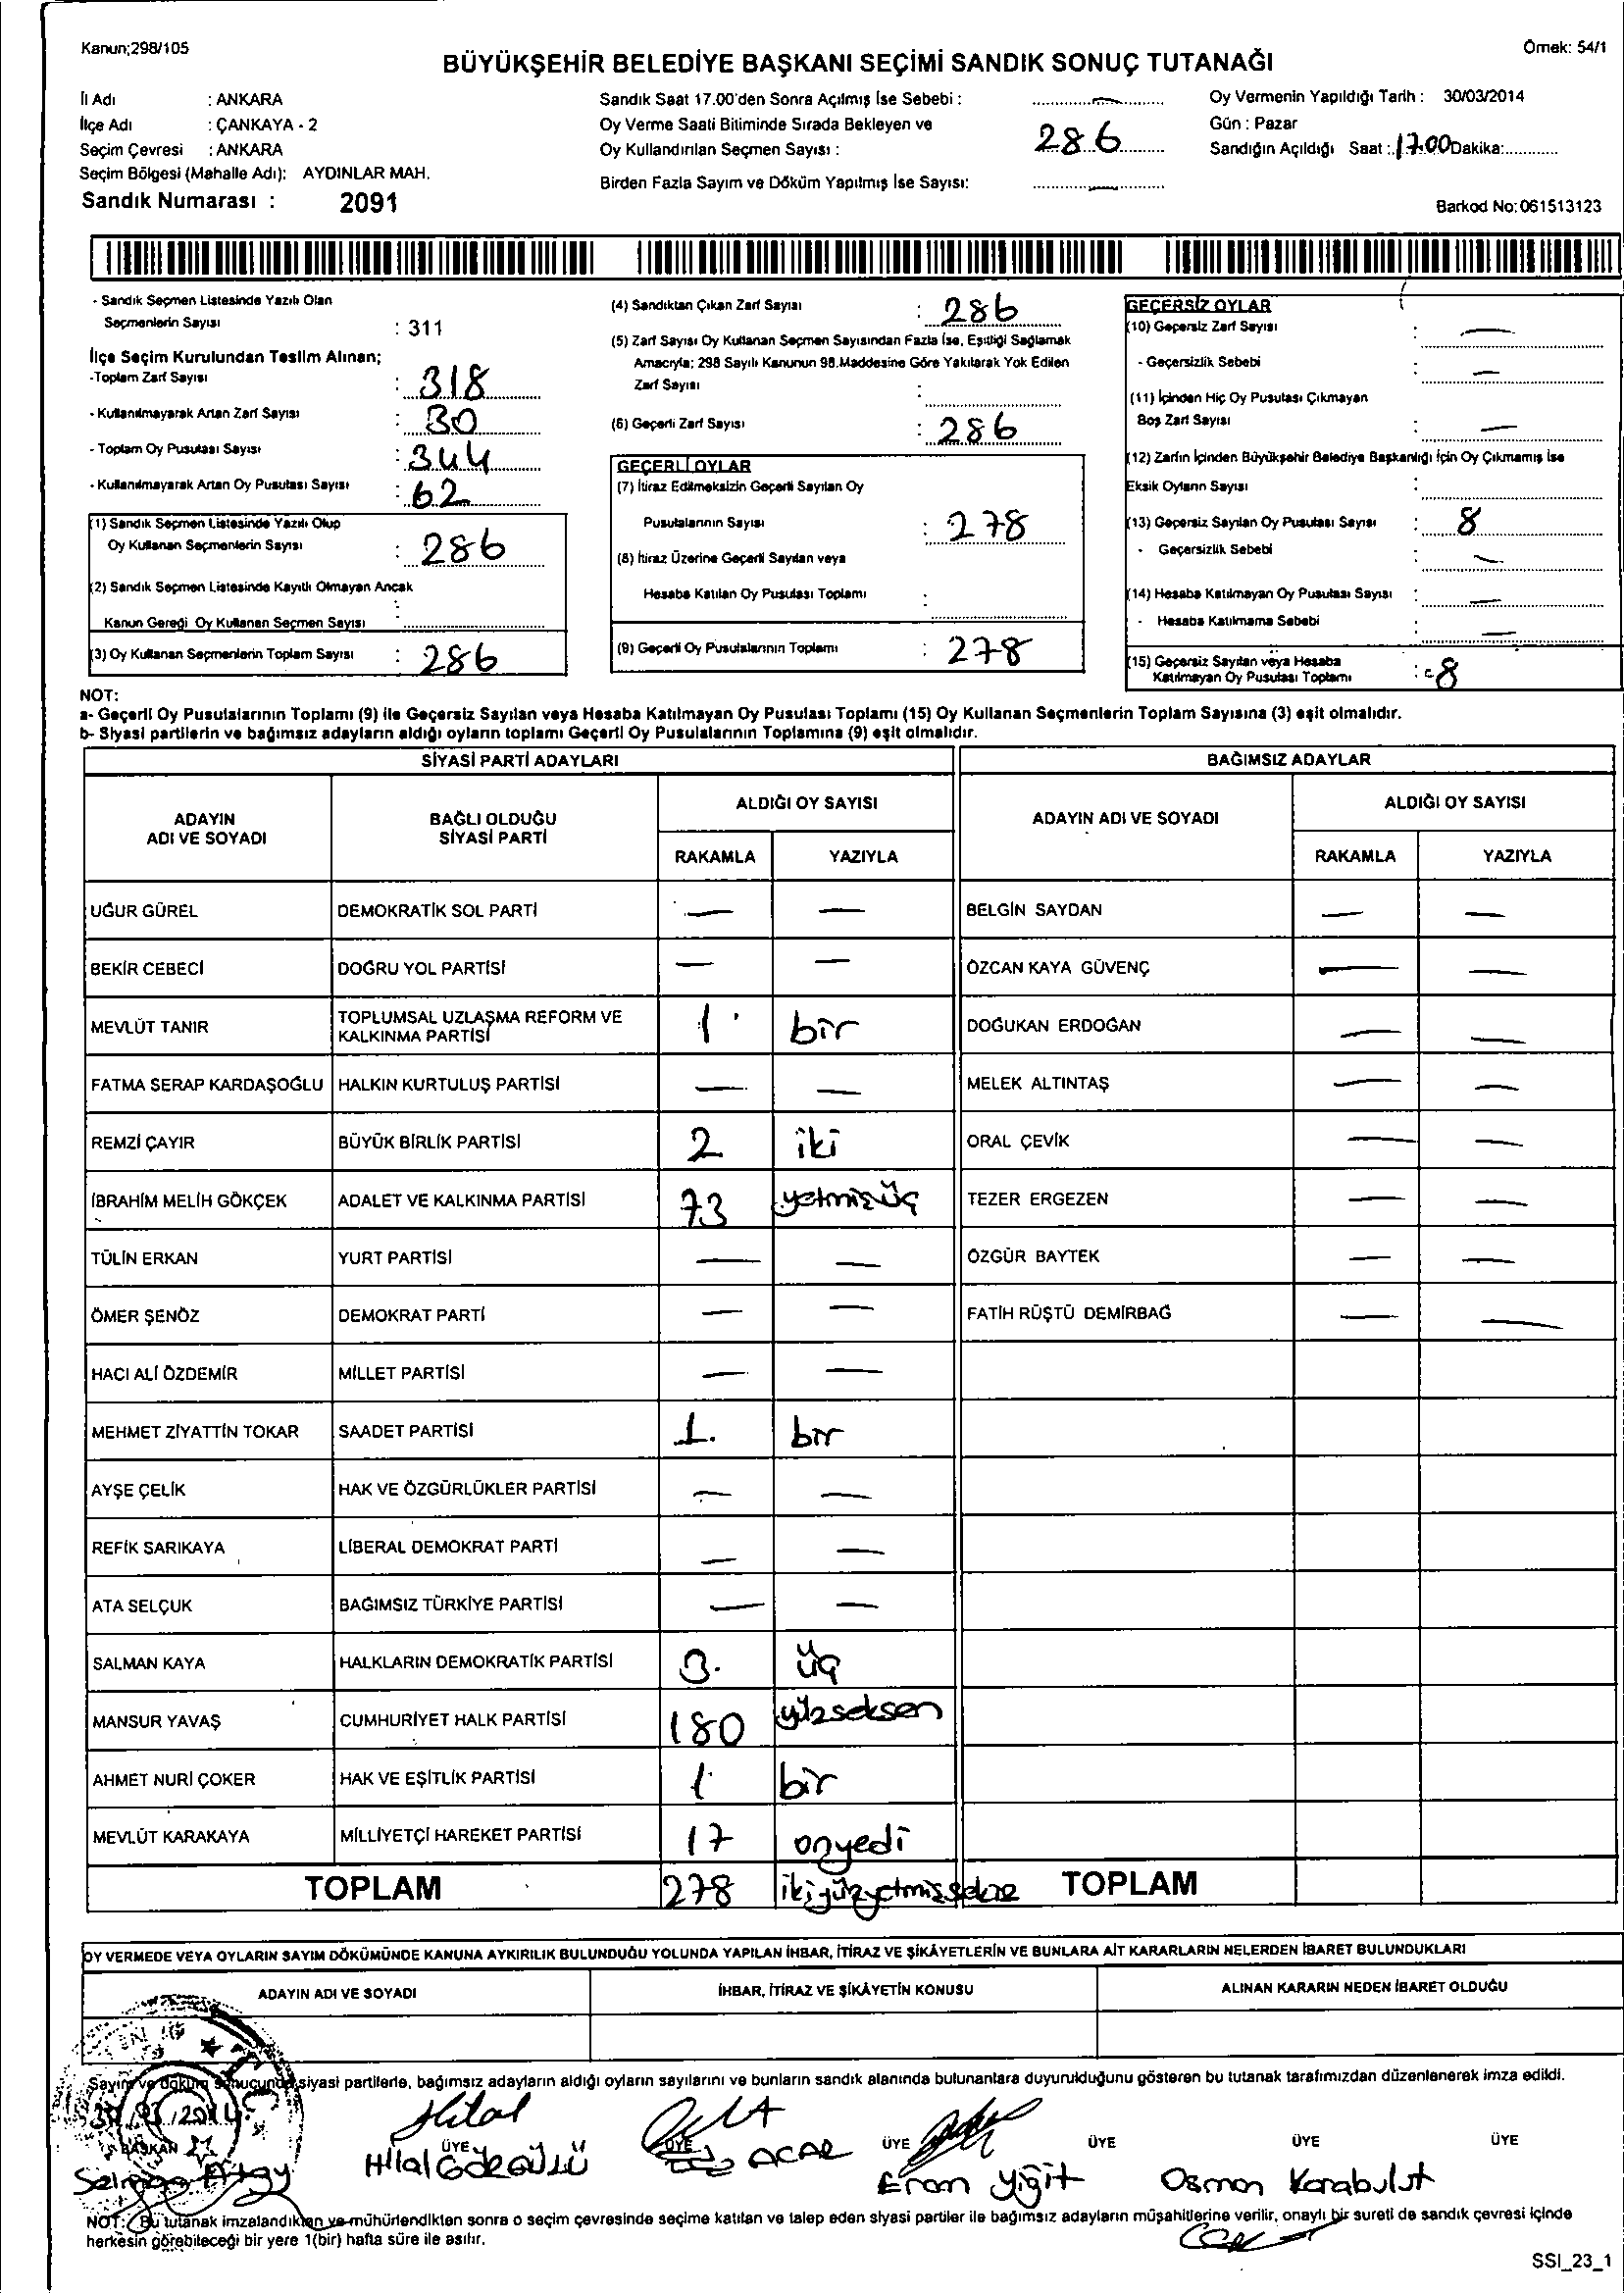 Kanun;298/105
Örnek: 54/1
BÜYÜKŞEHİR BELEDİYE BAŞKANI SEÇİMİ SANDIK SONUÇ TUTANAĞI
İl Adı : ANKARA
İlçe Adı : ÇANKAYA - 2
Seçim Çevresi : ANKARA
Seçim Bölgesi (Mahalle Adı): AYDINLAR MAH.
Sandık Numarası : 2091
Sandık Saat 17.00'den Sonra Açılmış İse Sebebi : —
Oy Verme Saati Bitiminde Sırada Bekleyen ve
Oy Kullandırılan Seçmen Sayısı : 286
Birden Fazla Sayım ve Döküm Yapılmış İse Sayısı: —
Oy Vermenin Yapıldığı Tarih : 30/03/2014
Gün : Pazar
Sandığın Açıldığı Saat : 17.00 Dakika:
Barkod No: 061513123
- Sandık Seçmen Listesinde Yazılı Olan
Seçmenlerin Sayısı : 311
İlçe Seçim Kurulundan Teslim Alınan;
-Toplam Zarf Sayısı : 318
- Kullanılmayarak Artan Zarf Sayısı : 30
- Toplam Oy Pusulası Sayısı : 344
- Kullanılmayarak Artan Oy Pusulası Sayısı : 62
(1) Sandık Seçmen Listesinde Yazılı Olup
Oy Kullanan Seçmenlerin Sayısı : 286
(2) Sandık Seçmen Listesinde Kayıtlı Olmayan Ancak
Kanun Gereği Oy Kullanan Seçmen Sayısı :
(3) Oy Kullanan Seçmenlerin Toplam Sayısı : 286
(4) Sandıktan Çıkan Zarf Sayısı : 286
(5) Zarf Sayısı Oy Kullanan Seçmen Sayısından Fazla İse, Eşitliği Sağlamak
Amacıyla; 298 Sayılı Kanunun 98.Maddesine Göre Yakılarak Yok Edilen
Zarf Sayısı :
(6) Geçerli Zarf Sayısı : 286
GEÇERLİ OYLAR
(7) İtiraz Edilmeksizin Geçerli Sayılan Oy
Pusulalarının Sayısı : 278
(8) İtiraz Üzerine Geçerli Sayılan veya
Hesaba Katılan Oy Pusulası Toplamı :
(9) Geçerli Oy Pusulalarının Toplamı : 278
GEÇERSİZ OYLAR
(10) Geçersiz Zarf Sayısı : —
- Geçersizlik Sebebi : —
(11) İçinden Hiç Oy Pusulası Çıkmayan
Boş Zarf Sayısı : —
(12) Zarfın İçinden Büyükşehir Belediye Başkanlığı İçin Oy Çıkmamış İse
Eksik Oyların Sayısı :
(13) Geçersiz Sayılan Oy Pusulası Sayısı : 8
- Geçersizlik Sebebi : —
(14) Hesaba Katılmayan Oy Pusulası Sayısı : —
- Hesaba Katılmama Sebebi : —
(15) Geçersiz Sayılan veya Hesaba
Katılmayan Oy Pusulası Toplamı : 8
NOT:
a- Geçerli Oy Pusulalarının Toplamı (9) ile Geçersiz Sayılan veya Hesaba Katılmayan Oy Pusulası Toplamı (15) Oy Kullanan Seçmenlerin Toplam Sayısına (3) eşit olmalıdır.
b- Siyasi partilerin ve bağımsız adayların aldığı oyların toplamı Geçerli Oy Pusulalarının Toplamına (9) eşit olmalıdır.
SİYASİ PARTİ ADAYLARI
BAĞIMSIZ ADAYLAR
ADAYIN ADI VE SOYADI
BAĞLI OLDUĞU SİYASİ PARTİ
ALDIĞI OY SAYISI
RAKAMLA YAZIYLA
ADAYIN ADI VE SOYADI
ALDIĞI OY SAYISI
RAKAMLA YAZIYLA
UĞUR GÜREL DEMOKRATİK SOL PARTİ — — BELGİN SAYDAN — —
BEKİR CEBECİ DOĞRU YOL PARTİSİ — — ÖZCAN KAYA GÜVENÇ — —
MEVLÜT TANIR TOPLUMSAL UZLAŞMA REFORM VE KALKINMA PARTİSİ 1 bir DOĞUKAN ERDOĞAN — —
FATMA SERAP KARDAŞOĞLU HALKIN KURTULUŞ PARTİSİ — — MELEK ALTINTAŞ — —
REMZİ ÇAYIR BÜYÜK BİRLİK PARTİSİ 2 iki ORAL ÇEVİK — —
İBRAHİM MELİH GÖKÇEK ADALET VE KALKINMA PARTİSİ 73 yetmişüç TEZER ERGEZEN — —
TÜLİN ERKAN YURT PARTİSİ — — ÖZGÜR BAYTEK — —
ÖMER ŞENÖZ DEMOKRAT PARTİ — — FATİH RÜŞTÜ DEMİRBAĞ — —
HACI ALİ ÖZDEMİR MİLLET PARTİSİ — —
MEHMET ZİYATTİN TOKAR SAADET PARTİSİ 1. bir
AYŞE ÇELİK HAK VE ÖZGÜRLÜKLER PARTİSİ — —
REFİK SARIKAYA LİBERAL DEMOKRAT PARTİ — —
ATA SELÇUK BAĞIMSIZ TÜRKİYE PARTİSİ — —
SALMAN KAYA HALKLARIN DEMOKRATİK PARTİSİ 3. üç
MANSUR YAVAŞ CUMHURİYET HALK PARTİSİ 180 yüzseksen
AHMET NURİ ÇOKER HAK VE EŞİTLİK PARTİSİ 1 bir
MEVLÜT KARAKAYA MİLLİYETÇİ HAREKET PARTİSİ 17 onyedi
TOPLAM 278 ikiyüzyetmişsekiz TOPLAM
OY VERMEDE VEYA OYLARIN SAYIM DÖKÜMÜNDE KANUNA AYKIRILIK BULUNDUĞU YOLUNDA YAPILAN İHBAR, İTİRAZ VE ŞİKÂYETLERİN VE BUNLARA AİT KARARLARIN NELERDEN İBARET BULUNDUKLARI
ADAYIN ADI VE SOYADI İHBAR, İTİRAZ VE ŞİKÂYETİN KONUSU ALINAN KARARIN NEDEN İBARET OLDUĞU
Sayım ve döküm sonucunda siyasi partilerle, bağımsız adayların aldığı oyların sayılarını ve bunların sandık alanında bulunanlara duyurulduğunu gösteren bu tutanak tarafımızdan düzenlenerek imza edildi.
30/03/2014
Hilal
BAŞKAN ÜYE ÜYE ÜYE ÜYE ÜYE ÜYE
Hilal ACAR
Eren Yiğit Osman Karabulut
NOT: Bu tutanak imzalandıktan ve mühürlendikten sonra o seçim çevresinde seçime katılan ve talep eden siyasi partiler ile bağımsız adayların müşahitlerine verilir, onaylı bir sureti de sandık çevresi içinde
herkesin görebileceği bir yere 1(bir) hafta süre ile asılır.
SSI_23_1